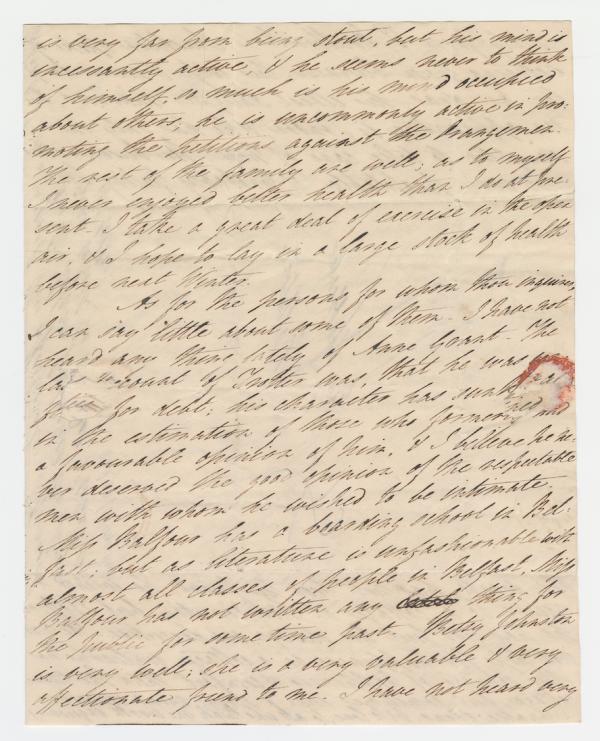 is very far from being stout, but his mind is
incessantly active, & he seems never to think
of himself, so much is his mind occupied
about others; he is uncommonly active in pro-
moting the petitions against the Orangemen.
The rest of the family are well; as to myself
I never enjoyed better health than I do at pre-
sent. I take a great deal of exercise in the open
air, & I hope to lay in a large stock of health
before next Winter.
As for the persons for whom thou inquires,
I can say little about some of them. I have not
heard any thing lately of Anne Grant. The
of Trotter was, that he was in
for debt; his character has sunk
in the estimation of those who had
a favourable opinion of him, & I believe he ne-
ver deserved the good opinion of the respectable
men with whom he wished to be intimate.
Miss Balfour has a boarding school in Bel-
fast; but as literature is unfashionable with
almost all classes of people in Belfast, Miss
Balfour has not written any thing for
the public for some time past. Betsy Johnston
is very well; she is a very valuable & very
affectionate friend to me. I have not heard very